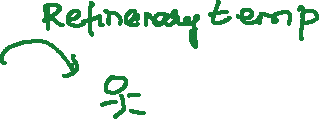 Refinerady temp